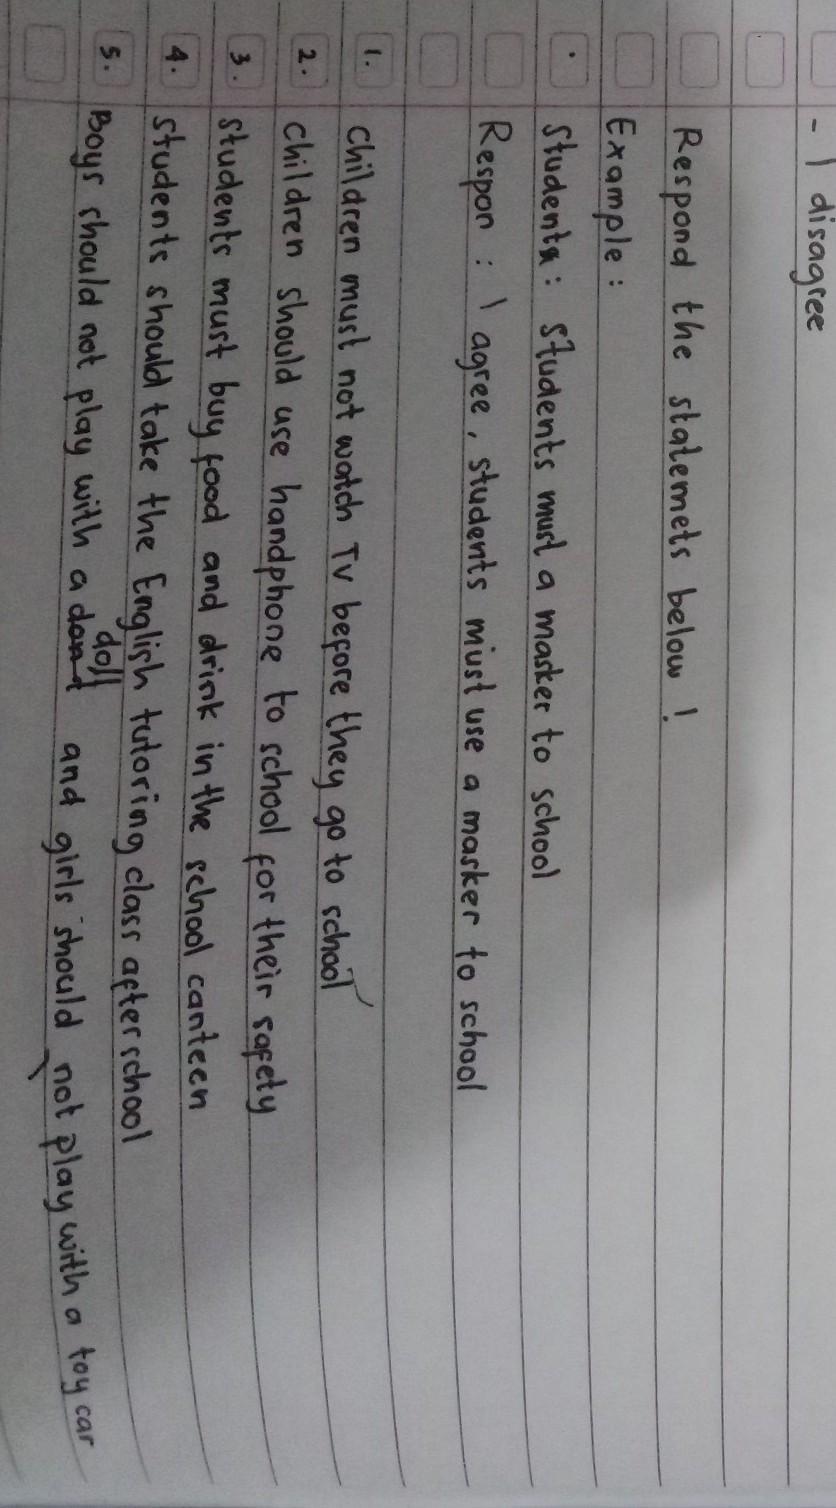 - I disagree
Respond the statemets below !
Example :
Students : Students must a masker to school
Respon : I agree, students must use a masker to school
1. Children must not watch TV before they go to school
2. Children should use handphone to school for their safety
3. Students must buy food and drink in the school canteen
4. Students should take the English tutoring class after school
5. Boys should not play with a doll and girls should not play with a toy car